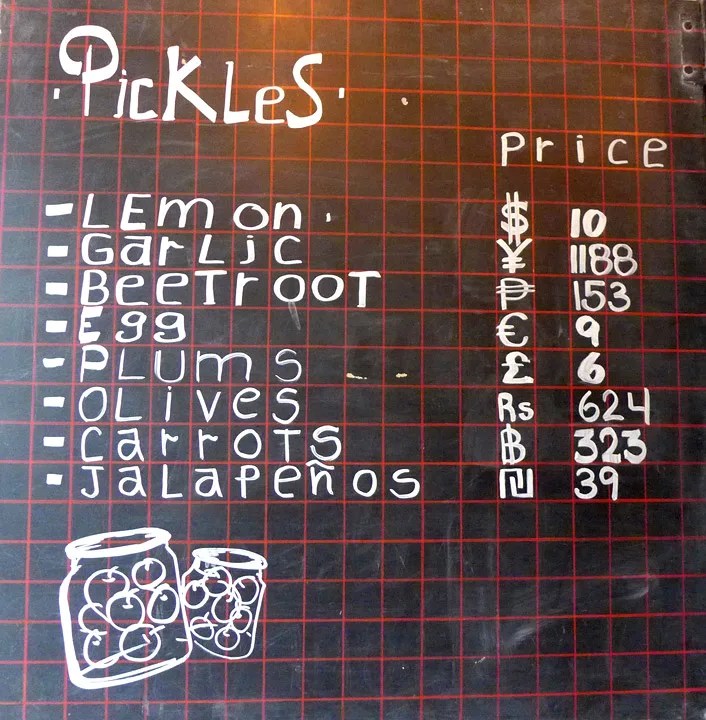 PickLes
Price
- LEmon $ 10
- GarLic ¥ 1188
- BeeTrooT ₱ 153
- Egg € 9
- PLUms £ 6
- OLives Rs 624
- CarroTS ฿ 323
- JaLaPeños ₪ 39